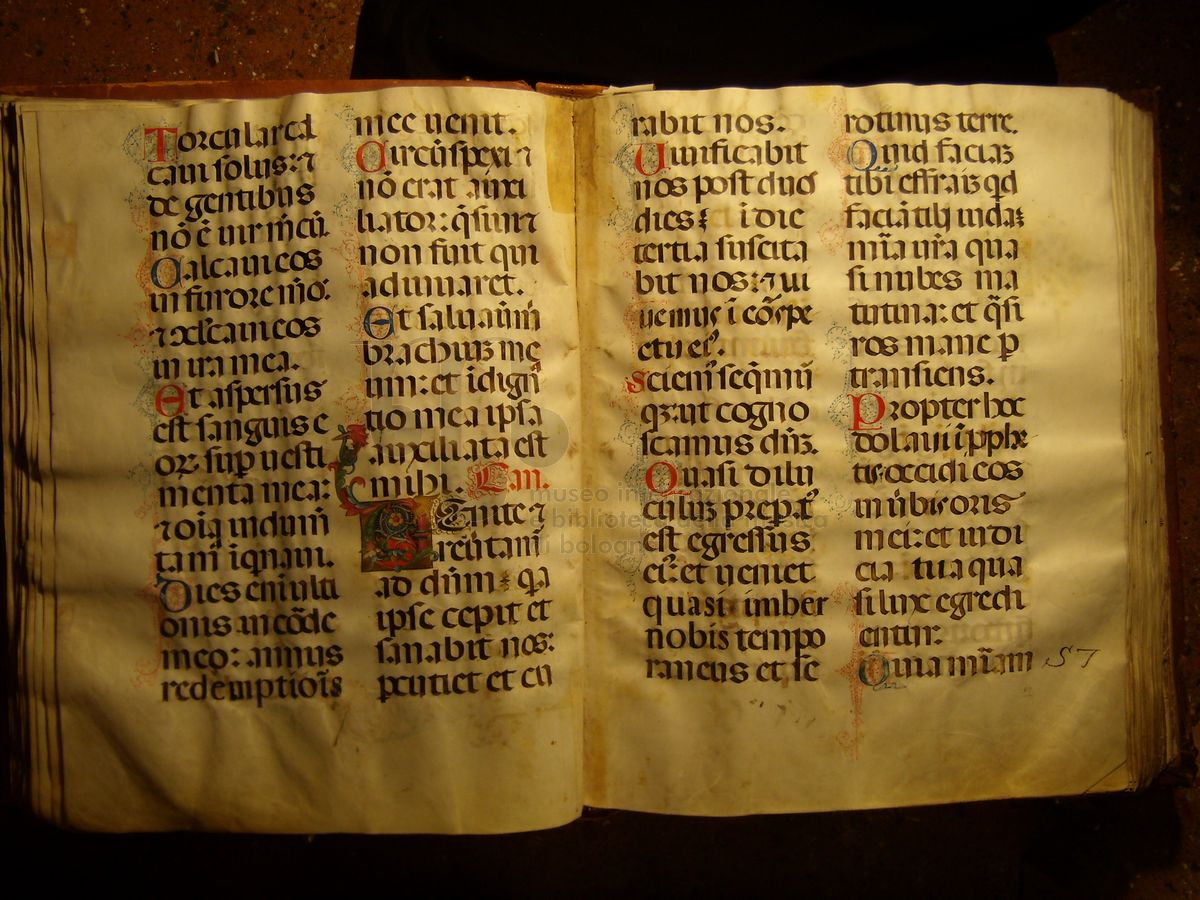 Torcular cal
caui solus: ⁊
de gentibus
nō ē uir mecū.
Calcaui eos
in furore meo.
⁊ cōculcaui eos
in ira mea.
Et aspersus
est sanguis e
oꝝ sup uesti
menta mea:
⁊ oīa indum̄
ta m̄ iqnaui.
Dies eni ulti
onis in corde
meo: annus
redemptiōis
mee uenit.
Circūspexi ⁊
nō erat auxi
liator: q̄siui ⁊
non fuit qui
adiuuaret.
Et saluauit m̄
brachiuꝫ me
um: et īdign̄
tio mea ipsa
auxiliata est
mihi. Can.
Uenite ⁊
reūtam̄
ad dūm: qa
ipse cepit et
sanabit nos:
percutiet et cu
rabit nos.
Uiuificabit
nos post duos
dies: ī die
tertia suscita
bit nos: ⁊ ui
uemus ī cōspe
ctu eiꝰ.
Sciemꝰ seqmur
qꝫ: ut cogno
scamus dn̄ꝫ.
Quasi dilu
culuꝫ prepat̄
est egressus
eiꝰ: et ueniet
quasi imber
nobis tempo
raneus et se
rotinus terre.
Quid faciaꝫ
tibi effraiꝫ qd
faciā tibi iuda:
mīa ur̄a qua
si nubes ma
tutina: et q̄si
ros mane p
transiens.
Propter hoc
dolaui ī pphe
tis occidi eos
in ūbis oris
mei: et iudi
cia tua qua
si lux egredi
entur:
Quia mīam
57
museo internazionale
e biblioteca della musica
di bologna